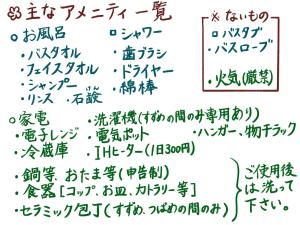 主なアメニティ一覧
○お風呂
・バスタオル
・フェイスタオル
・シャンプー
・リンス ・石鹸
○シャワー
・歯ブラシ
・ドライヤー
・綿棒
※ないもの
□バスタブ
・バスローブ
・火気(厳禁)
○家電 ・洗濯機(すずめの間のみ専用あり)
・電子レンジ ・電気ポット ・ハンガー、物干ラック
・冷蔵庫 ・IHヒーター(1日300円)
・鍋等、おたま等(申告制)
・食器[コップ、お皿、カトラリー等]
・セラミック包丁(すずめ、つばめの間のみ)
ご使用後
は洗って
下さい。